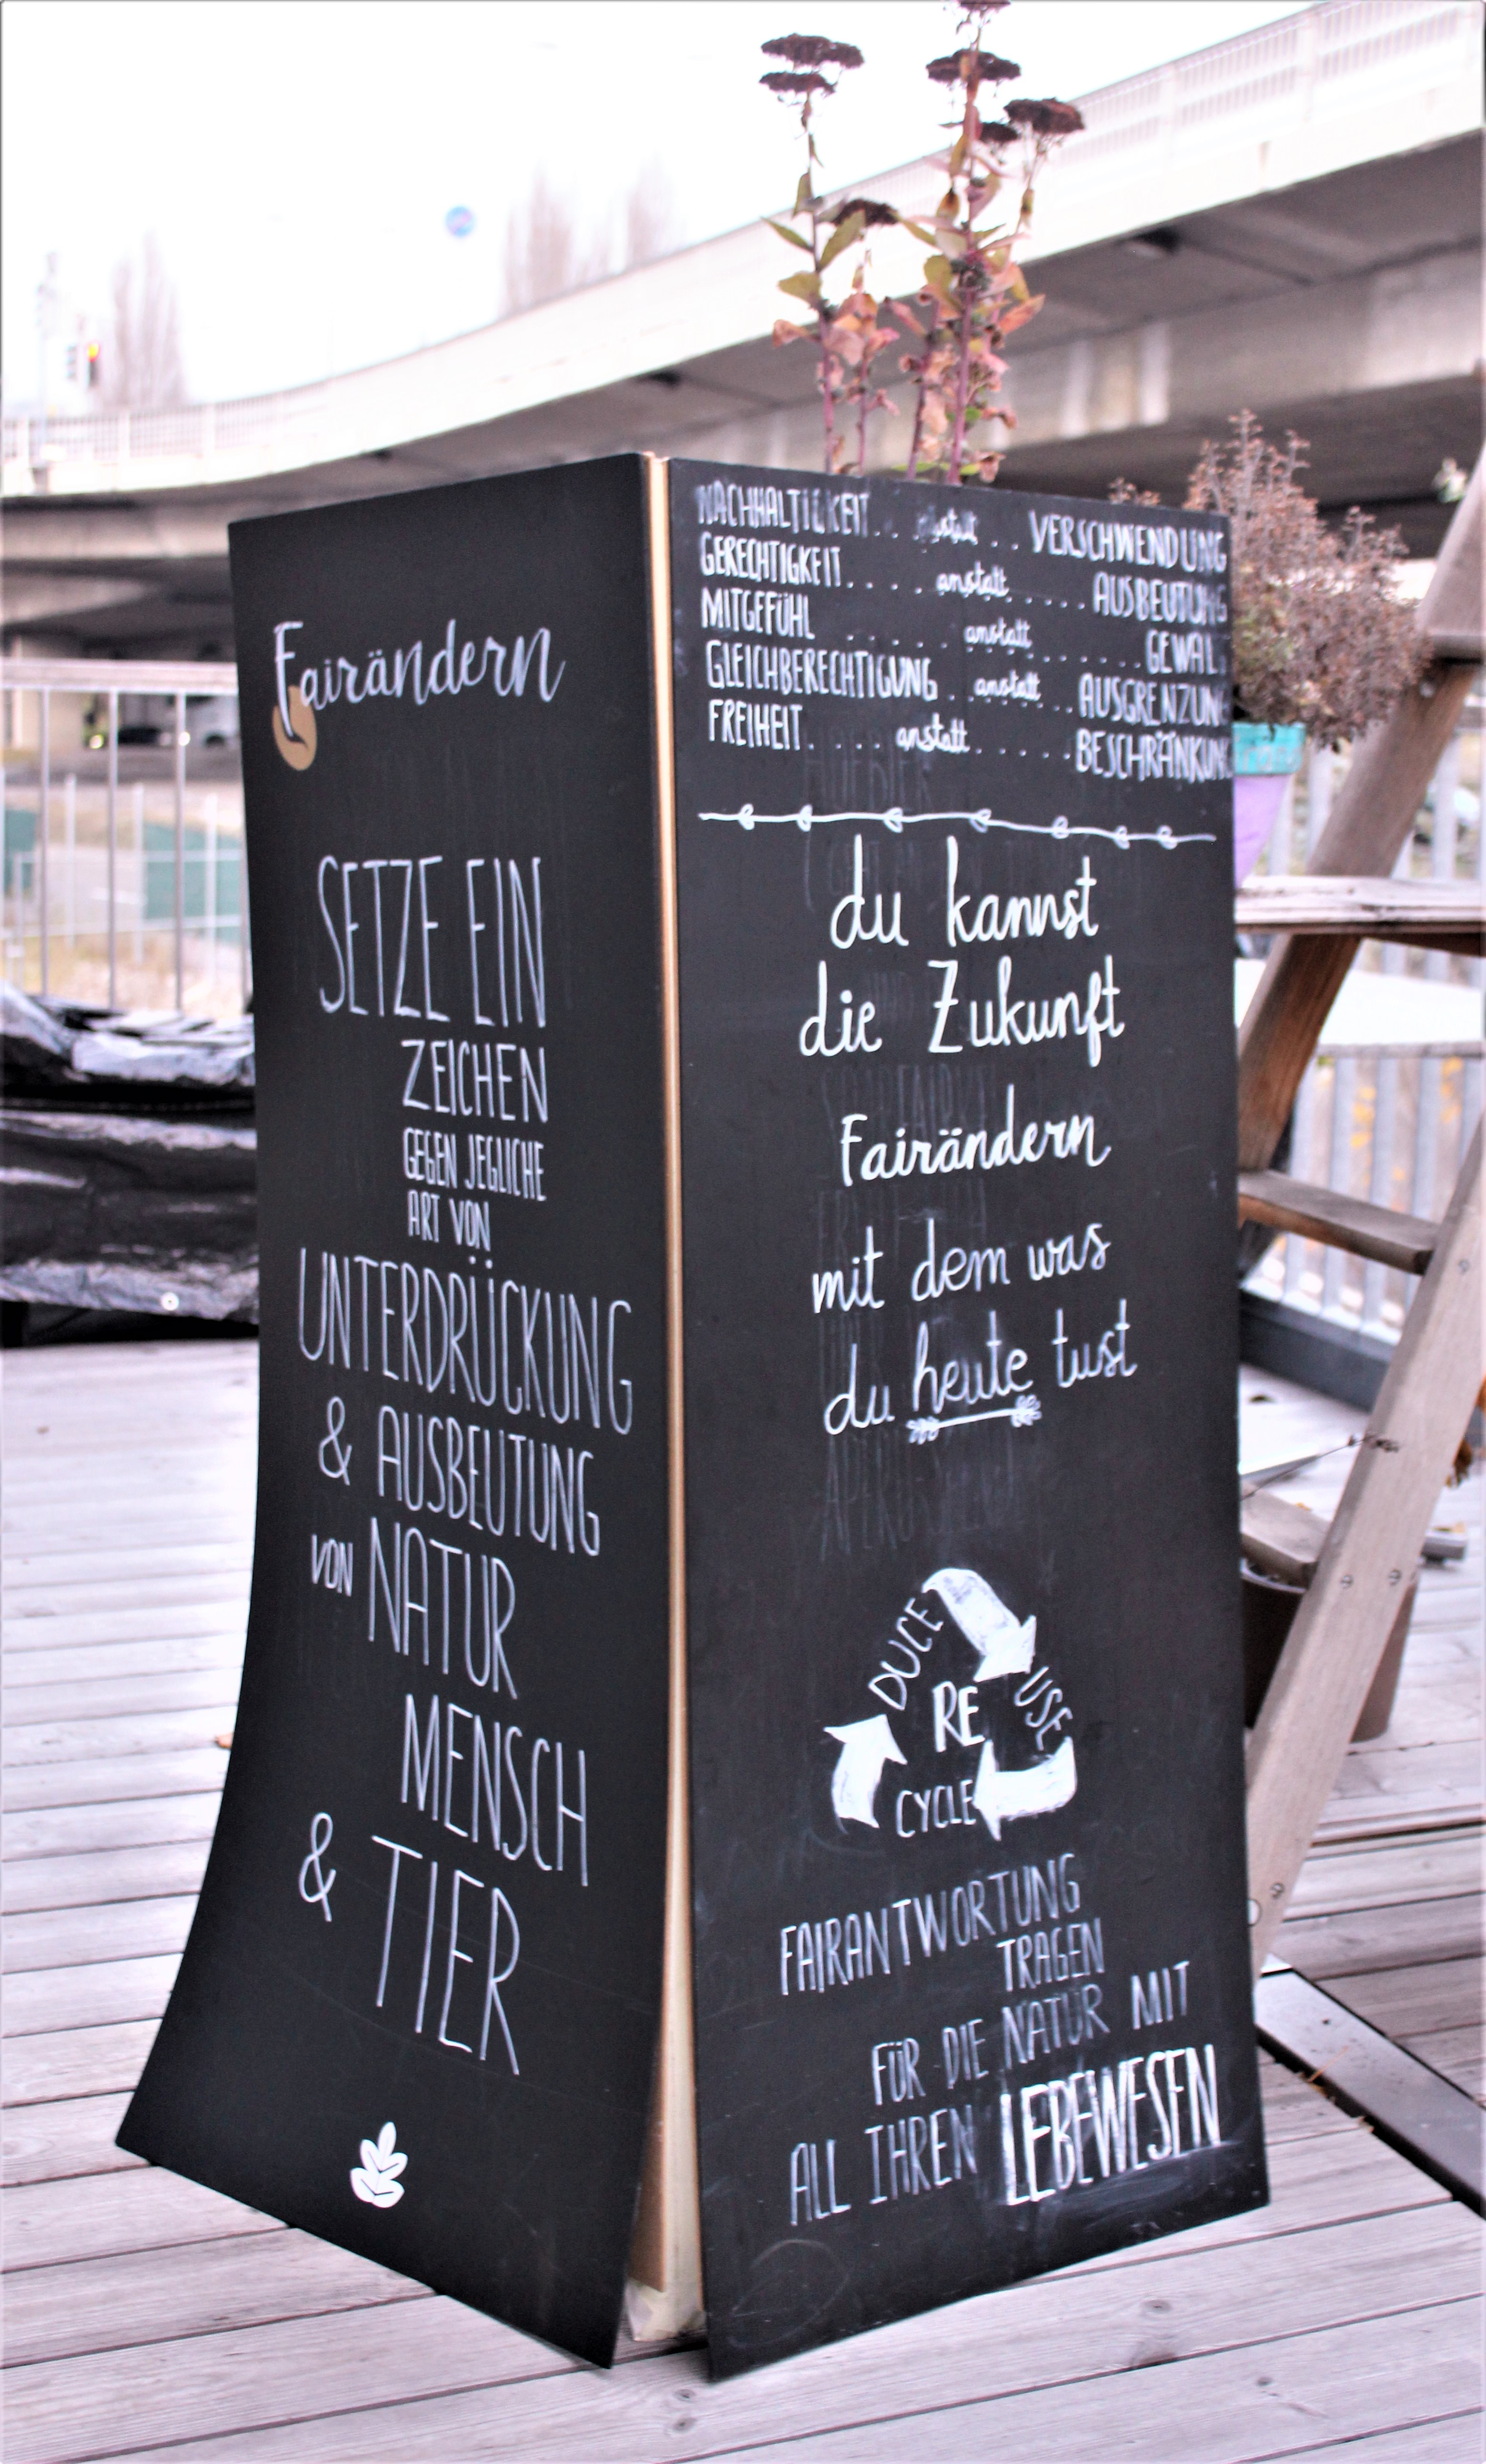 Fairändern
SETZE EIN
ZEICHEN
GEGEN JEGLICHE
ART VON
UNTERDRÜCKUNG
& AUSBEUTUNG
VON NATUR
MENSCH
& TIER
NACHHALTIGKEIT.. anstatt .. VERSCHWENDUNG
GERECHTIGKEIT.... anstatt..... AUSBEUTUNG
MITGEFÜHL ..... anstatt....... GEWAL
GLEICHBERECHTIGUNG . anstatt... AUSGRENZUN
FREIHEIT.... anstatt..... BESCHRÄNKUN
du kannst
die Zukunft
Fairändern
mit dem was
du heute tust
DUCE
RE
USE
CYCLE
FAIRANTWORTUNG
TRAGEN
FÜR DIE NATUR MIT
ALL IHREN LEBEWESEN